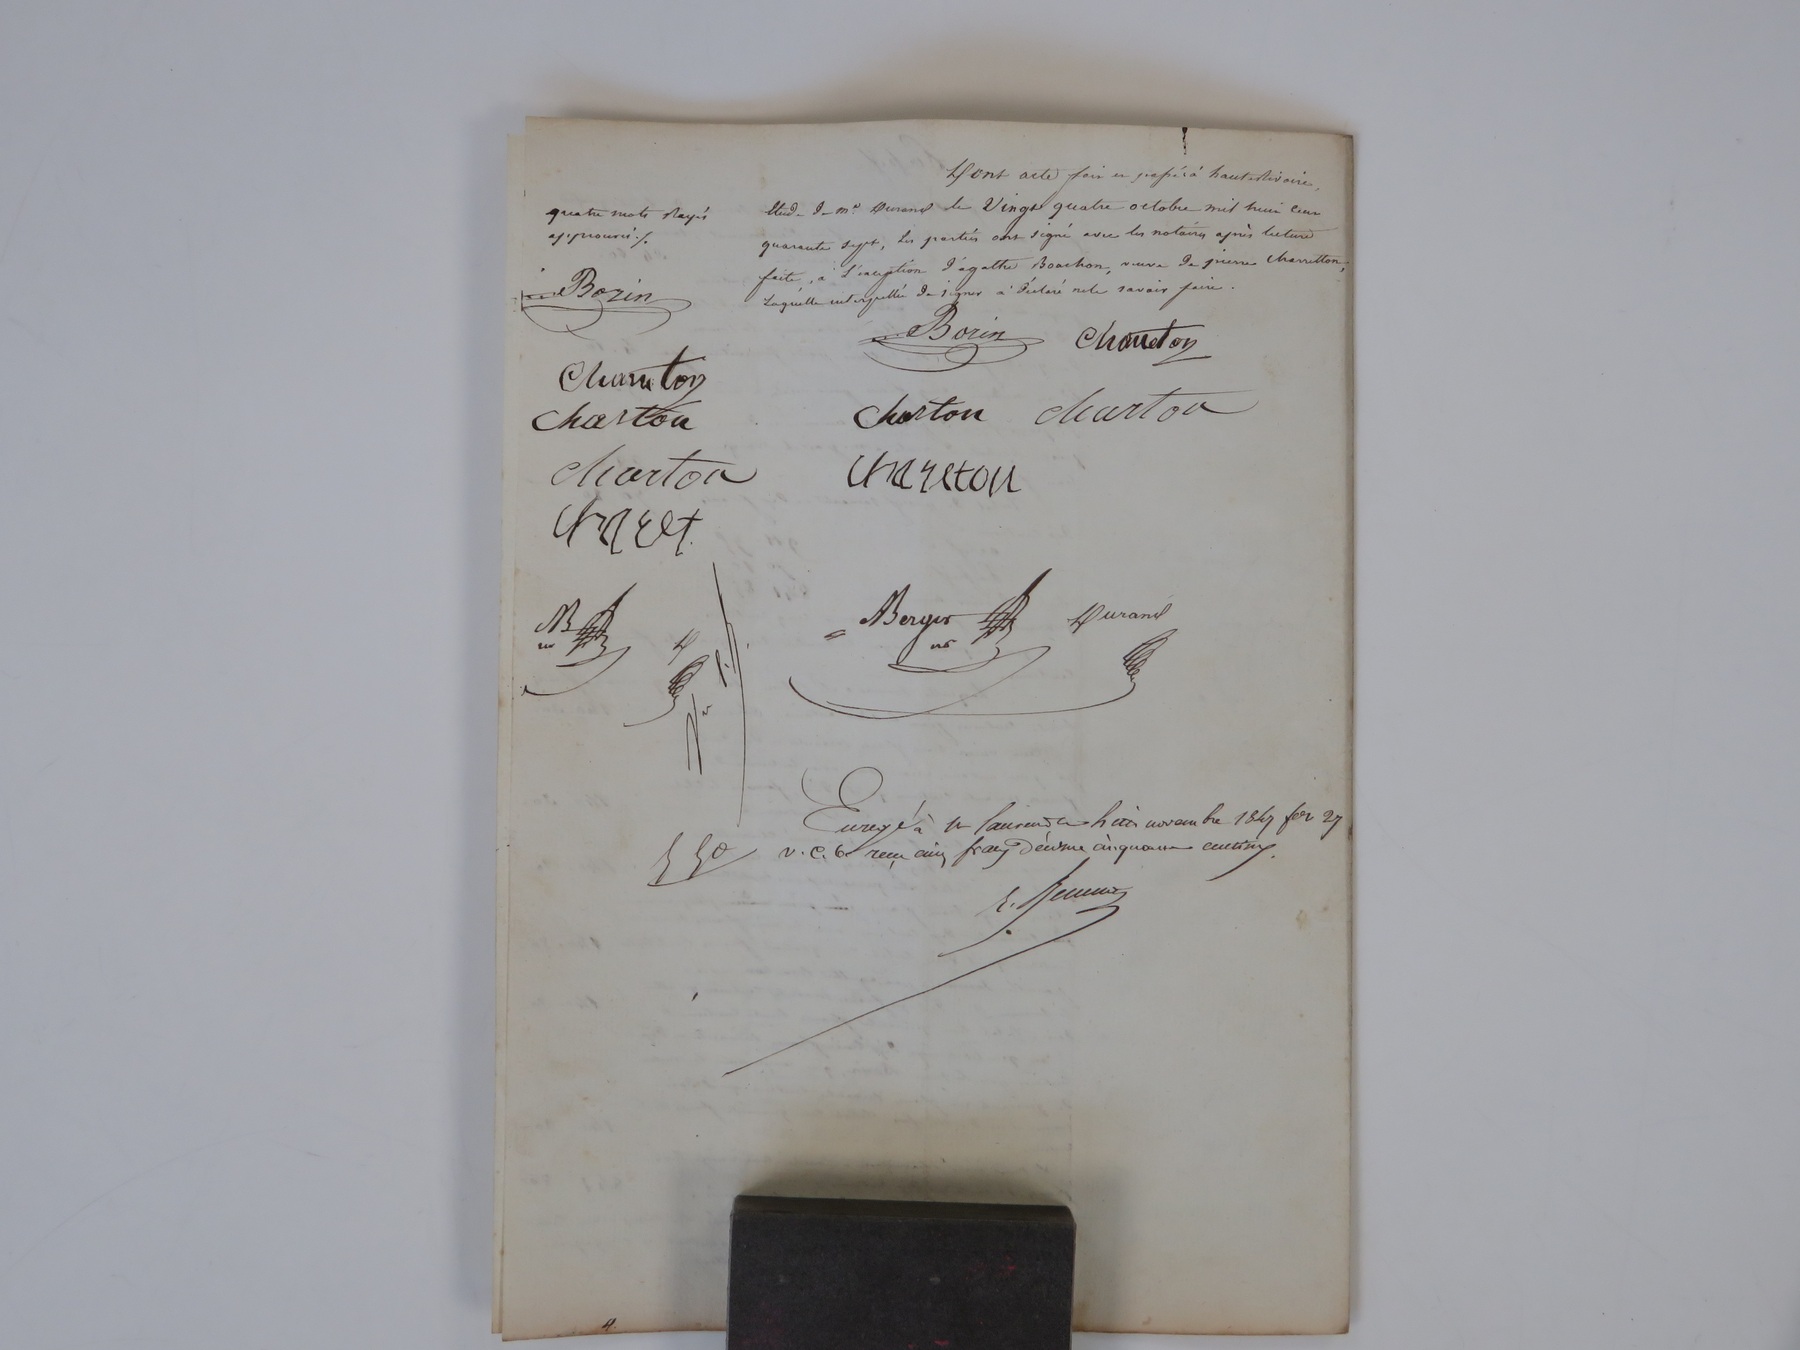 Dont acte fait et passé à hauterivoire,
Etude de me Durand le Vingt quatre octobre mil huit cent
quarante sept, les parties ont signé avec les notaires après lecture
faite, à l'exception d'agathe Boachon, veuve de pierre Charretton,
Laquelle interpellée de signer a déclaré ne le savoir faire.
quatre mots rayés
approuvés
Bozin
Charreton
Charton
Charton
Charet
Bozin Charreton
Charton Charton
Chareton
B D
Berger Durand
nre
Enregé à St Laurent le huit novembre 1847 fol 27
v. c. 6 reçu cinq francs décime cinquante centimes.
5 50
4